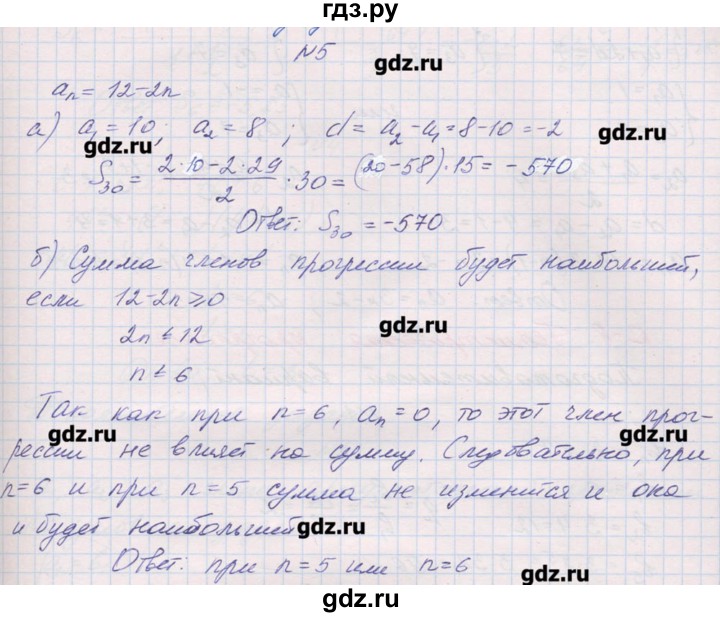 гдз.ру
№5
gdz.ru
aₙ = 12-2n
а) a₁ = 10; a₂ = 8; d = a₂ - a₁ = 8-10 = -2
gdz.ru
gdz.ru
S₃₀ = (2·10-2·29)/2 · 30 = (20-58)·15 = -570
Ответ: S₃₀ = -570
б) Сумма членов прогрессии будет наибольший,
если 12-2n ≥ 0
gdz.ru
2n ≤ 12
n ≤ 6
Так как при n=6, aₙ=0, то этот член прог-
gdz.ru
gdz.ru
рессии не влияет на сумму. Следовательно, при
n=6 и при n=5 сумма не изменится и она
и будет наибольший
gdz.ru
Ответ: при n=5 или n=6
gdz.ru
gdz.ru